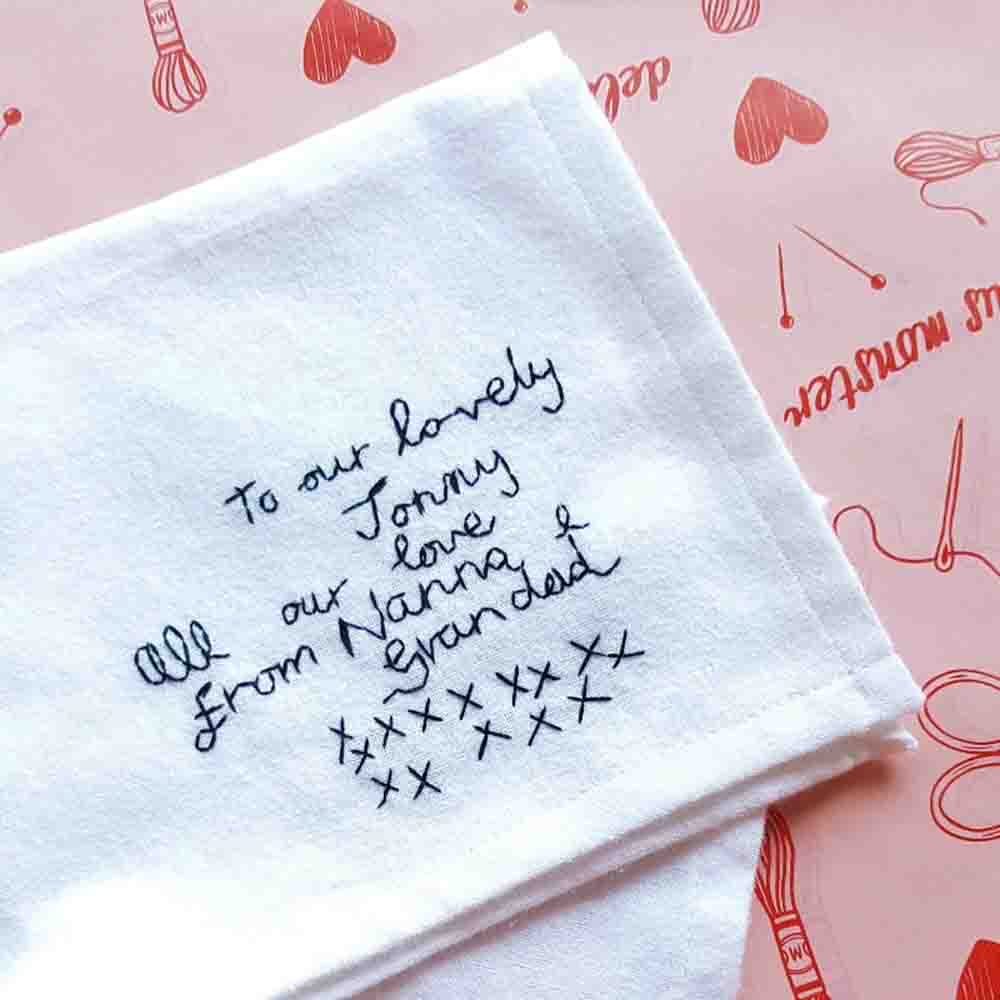 To our lovely
Jonny
All our love
from Nanna &
Grandad
x x x x xx xx
x
x x x x x
deli
us monster